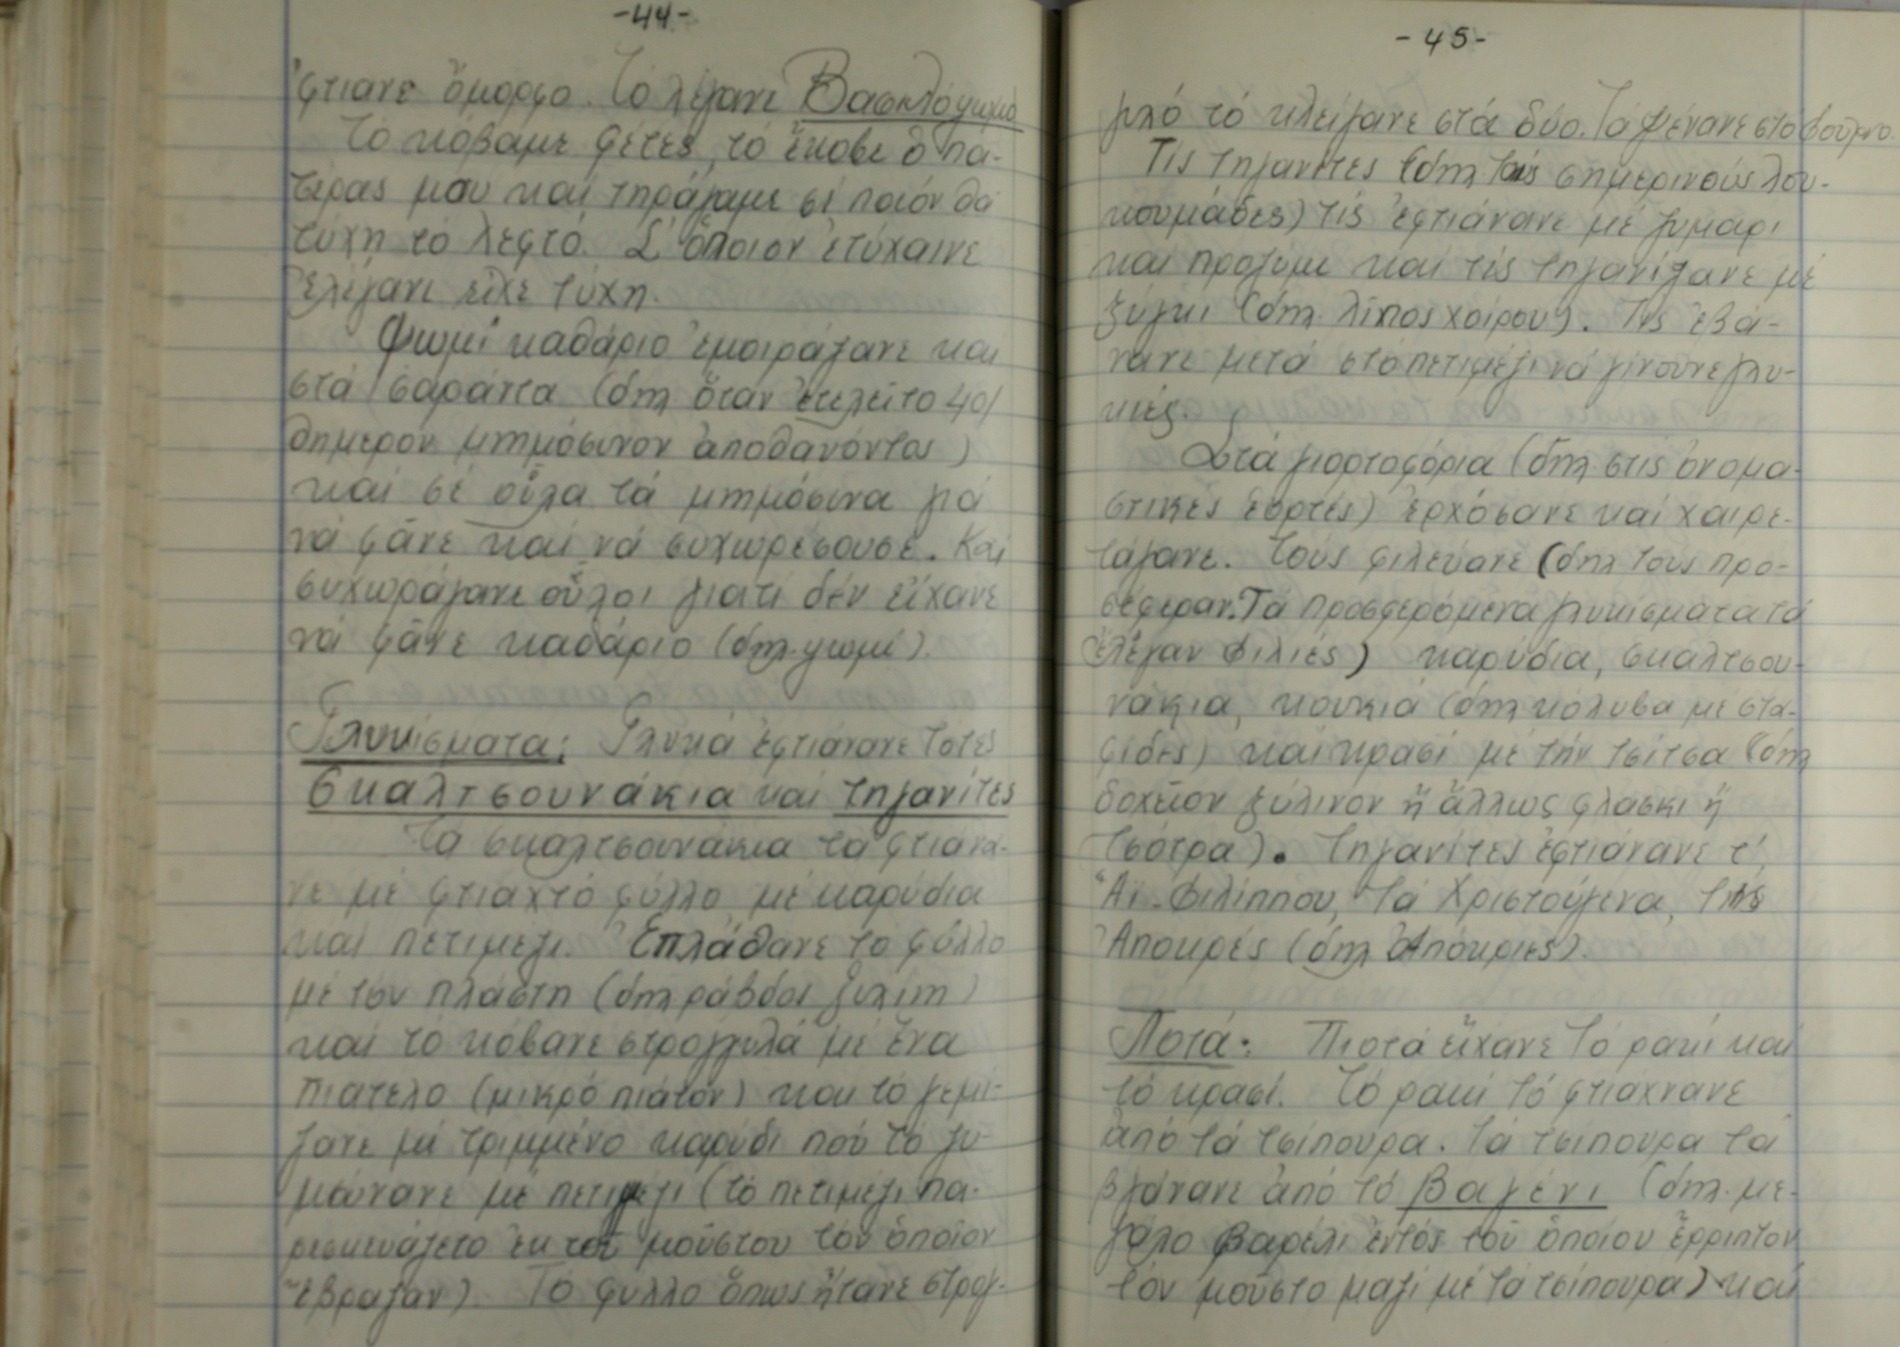 -44-
'φτιανε ὄμορφο. Τό λέγανε Βασιλόψωμο
Τό κόβαμε φέτες, τό ἔκοβε ὁ πα-
τέρας μου καί τηράγαμε σέ ποιόν θά
τύχη τό λεφτό. Σ' ὅποιον ἐτύχαινε
ἐλέγανε εἶχε τύχη.
Ψωμί καθάριο ἐμοιράζανε και
στά σαράντα (δηλ ὅταν ἐτελεῖτο 40/
θημερον μνημόσυνον ἀποθανόντος)
καί σέ οὖλα τά μνημόσυνα γιά
νά φᾶνε καί νά συχωρέσουσε. Καί
συχωράγανε οὖλοι γιατί δέν εἴχανε
νά φᾶνε καθάριο (δηλ. ψωμί).
Γλυκίσματα: Γλυκά ἐφτιάνανε τότες
σκαλτσουνάκια και τηγανίτες
Τά σκαλτσουνάκια τά φτιάνα-
νε μέ φτιαχτό φύλλο μέ καρύδια
και πετιμέζι. Ἐπλάθανε τό φύλλο
μέ τόν πλάστη (δηλ ράβδος ξυλίνη)
και τό κόβανε στρογγυλά μέ ἕνα
πιατέλο (μικρό πιάτον) και τό γεμί-
ζανε μέ τριμμένο καρύδι πού τό ζυ-
μώνανε μέ πετιμέζι (τό πετιμέζι πα-
ρεσκευάζετο ἐκ τοῦ μούστου τόν ὁποῖον
ἔβραζαν). Τό φυλλο ὅπως ἤτανε στρογ-
-45-
γυλό τό κλείγανε στά δύο. Τά ψένανε στό φοῦρνο
Τίς τηγανίτες (δηλ τούς σημερινούς λου-
κουμάδες) τίς ἐφτιάνανε μέ ζυμάρι
και προζύμι και τίς τηγανίζανε μέ
ξύγκι (δηλ. λίπος χοίρου). Τίς ἐβά-
νανε μετά στό πετιμέζι νά γίνουνε γλυ-
κιές.
Στά γιορτοφόρια (δηλ. στίς ὀνομα-
στικές ἑορτές) ἐρχόσανε καί χαιρε-
τάγανε. Τούς φιλεύανε (δηλ τούς προ-
σέφεραν. Τά προσφερόμενα γλυκίσματα τά
ἐλέγαν φιλιές) καρύδια, σκαλτσου-
νάκια, κουκιά (δηλ κόλυβα μέ στα-
φίδες) καί κρασί μέ τήν τσίτσα (δηλ
δοχεῖον ξύλινον ἤ ἄλλως φλασκι ἤ
τσότρα). Τηγανίτες ἐφτιάνανε τ'
Ἁϊ-Φιλίππου, τά Χριστούγενα, τίς
Ἀποκρές (δηλ Ἀπόκριες).
Ποτά: Πιοτά εἴχανε τό ρακί και
τό κρασί. Τό ρακί τό φτιάχνανε
ἀπό τά τσίπουρα. Τά τσίπουρα τά
βγάνανε ἀπό τό βαγένι (δηλ. με-
γάλο βαρέλι ἐντός τοῦ ὁποίου ἔρριπτον
τόν μοῦστο μαζί μέ τά τσίπουρα) και